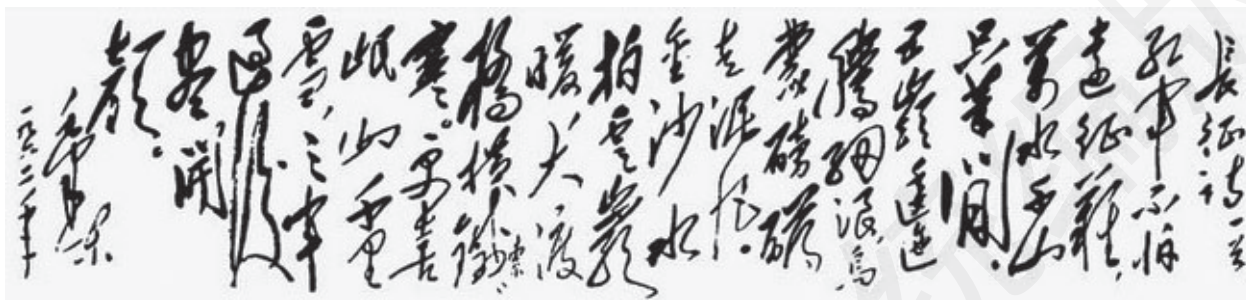 長征詩一首
紅軍不怕
遠征難,
萬水千山
只等閒。
五嶺逶迤
騰細浪,烏
蒙磅礴
走泥丸。
金沙水
拍雲巖
暖,大渡
橋橫鐵索
寒。更喜
岷山千里
雪,三軍
過後
盡開
顏。
毛澤東
一九六二